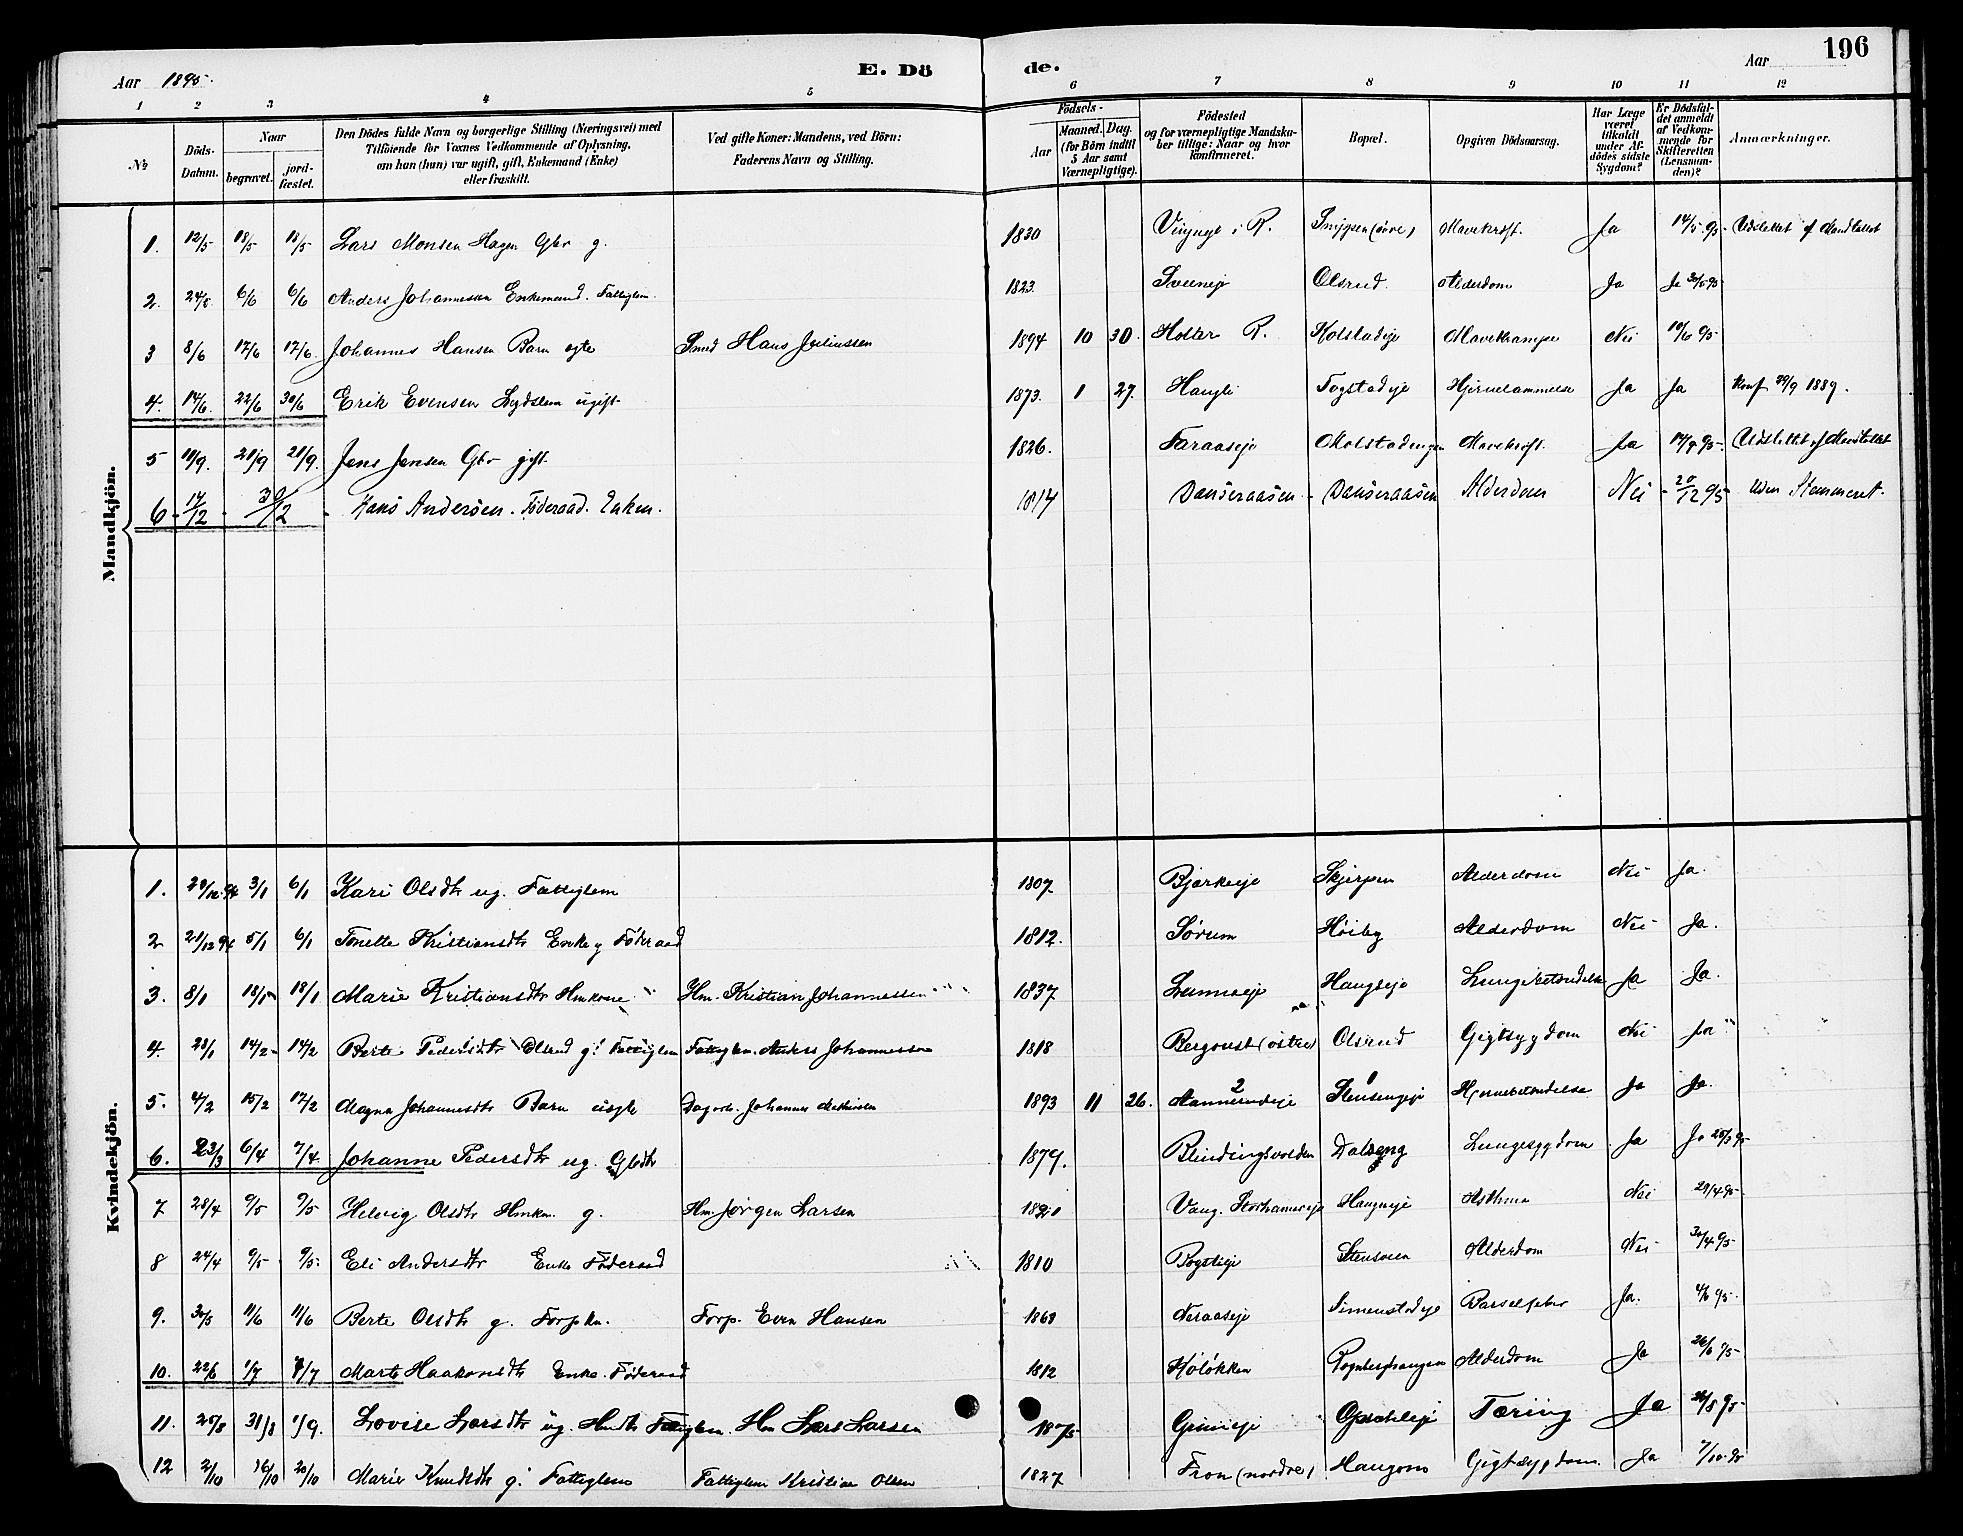 Aar 1895.
E. Dö de.
Aar
196
1 2 3 4 5 6 7 8 9 10 11 12
№ Döds-Datum. Naar begravet. jord-fæstet. Den Dödes fulde Navn og borgerlige Stilling (Næringsvei) med Tilföiende for Voxnes Vedkommende af Oplysning, om han (hun) var ugift, gift, Enkemand (Enke) eller fraskilt. Ved gifte Koner: Mandens, ved Börn: Faderens Navn og Stilling. Födsels- Aar Maaned. Dag. (for Börn indtil 5 Aar samt Værnepligtige). Födested og for værnepligtige Mandskaber tillige: Naar og hvor konfirmeret. Bopæl. Opgiven Dödsaarsag. Har Læge været tilkaldt under Afdödes sidste Sygdom? Er Dödsfaldet anmeldt af Vedkommende for Skifteretten (Lensmanden)? Anmærkninger.
Mandkjön.
1. 12/5 18/5 18/5 Lars Monsen Hagen Gbr g. 1830 i R. Mavekræft. Ja 14/5 95 Udslettet af Mandtallet
2. 6/6 6/6 Anders Johannessen Enkemand. Fattiglem. 1823. Olsrud. Alderdom Ja Ja 30/5 95
3 8/6 17/6 17/6. Johannes Hansen Barn ægte Smed Hans Juliussen 1894 10 30. Holter R. Kolstadeje Mavekrampe Nei 19/6 95
4. 14/6. 22/6 30/6 Erik Evensen Lægdslem ugift 1873. 1 27. Haugli Fogstadeje Hjernelammelse Ja Ja Konf 29/9 1889.
5 11/9. 21/9 21/9. Jens Jensen Gbr gift. 1826. Faraaseje Mavekræft. Ja 14/9 95. Udslettet af Mandtallet
6 - 17/12 - 30/12 - Hans Andersen. Föderaad. Enkem. 1814 Danseraasen - Danseraasen Alderdom Nei - 20/12 95 Uden Stemmeret.
Kvindekjön.
1. 29/12 94 3/1 6/1 Kari Olsdtr ug. Fattiglem 1807. Bjerkeeje Skjerpen Alderdom Nei Ja.
2 21/12 94 5/1 6/1 Tonette Kristiansdtr Enke Föderaad 1812. Sørum Høiby Alderdom Nei Ja.
3. 8/1 18/1 18/1 Marie Kristiansdtr Hmkone Hm. Kristian Johannessen 1837 Haugseje Lungebetændelse Ja Ja.
4. 28/1 14/2 14/2 Berte Pedersdtr Olsrud g. Fattiglem Fattiglem Anders Johannessen 1818 Bergoust (østre) Olsrud Gigtsygdom Nei Ja
5. 4/2 15/2 17/2 Magna Johannesdtr Barn uegte Dagarb. Johannes Mathisen 1893 11 26. Stensengeje Hjernebetændelse Ja Ja.
6. 23/3 6/4 7/4 Johanne Pedersdtr ug. Gbdtr 1879. Blindingsvolden Dalseng Lungesygdom Ja Ja 25/3 95
7 28/4 9/5 9/5 Helvig Olsdtr Hmkn. g. Hm. Jørgen Larsen Vang. Storhamereje Asthma Nei 29/4 95
8 24/4 9/5 9/5 Eli Andersdtr Enke Föderaad 1810 Bogstieje Stensveen Alderdom Nei 30/4 95
9. 30/5 11/6 11/6 Berte Olsdtr g. Forpkn. Forp. Even Hansen 1868 Neraaseje Simenstadeje Barselfeber Ja. 4/6 95
10. 22/6 1/7 1/7 Marte Haakonsdtr Enke. Föderaad 1812 Køløkken Rognberghaugen Alderdom Ja 26/6 95
11. 20/8 31/8 1/9. Lovise Larsdtr ug. Hmdtr Fattiglem. Hm Lars Larsen 1875 Grinieje Opsahleje Tæring Ja 26/8 95
12 2/10 16/10 20/10 Marie Knudsdtr g. Fattiglem Fattiglem Kristian Olsen 1827 Fron (nordre) Haugom Gigtsygdom. Ja 7/10 95